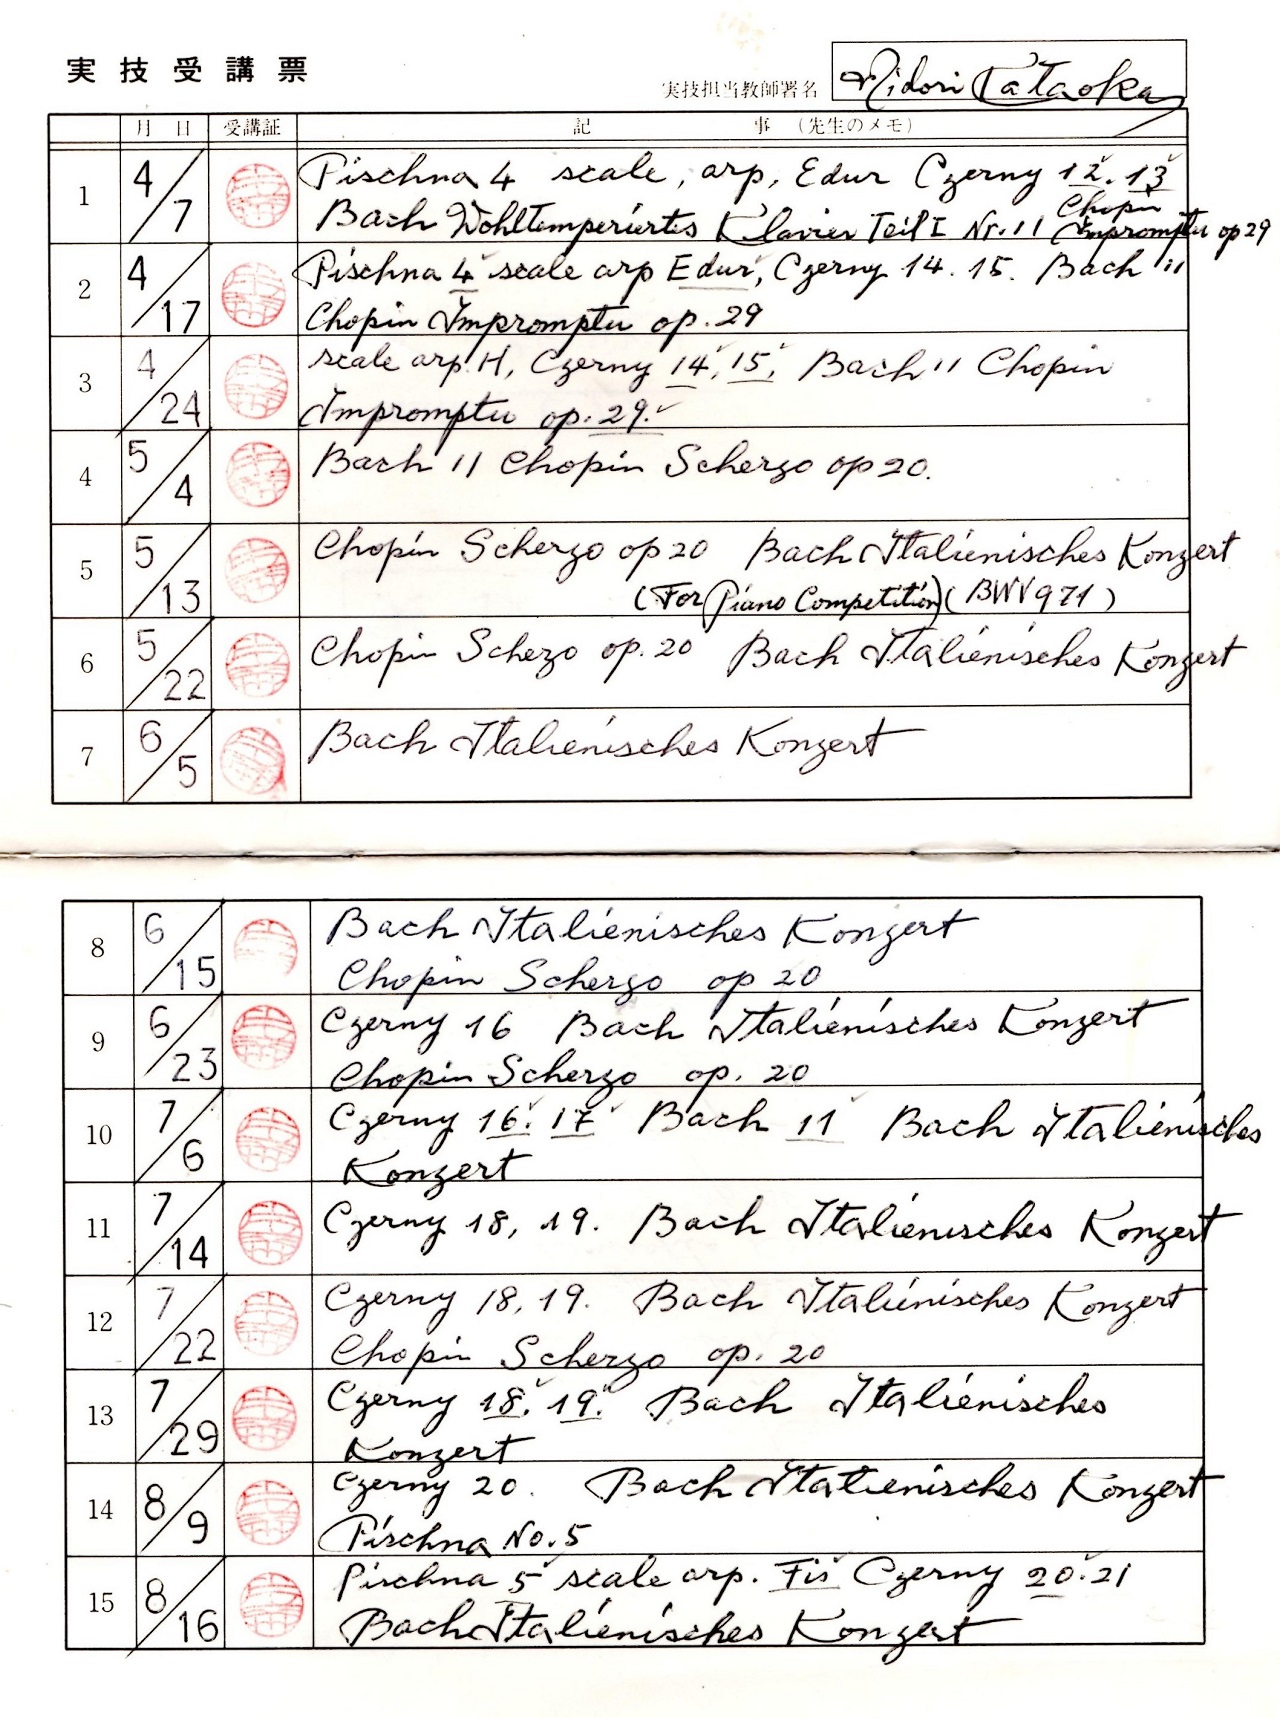 実技受講票
実技担当教師署名 Midori Kataoka
月 日 受講証 記 事 (先生のメモ)
1 4/7 Pischna 4 scale, arp, Edur Czerny 12. 13
Chopin
Bach Wohltemperiertes Klavier Teil I Nr. 11 Impromptu op 29
2 4/17 Pischna 4 scale arp Edur, Czerny 14. 15. Bach 11
Chopin Impromptu op. 29
3 4/24 scale arp H, Czerny 14, 15, Bach 11 Chopin
Impromptu op. 29.
4 5/4 Bach 11 Chopin Scherzo op 20.
5 5/13 Chopin Scherzo op 20 Bach Italienisches Konzert
(For Piano Competition) (BWV 971)
6 5/22 Chopin Schezo op. 20 Bach Italienisches Konzert
7 6/5 Bach Italienisches Konzert
8 6/15 Bach Italienisches Konzert
Chopin Scherzo op 20
9 6/23 Czerny 16 Bach Italienisches Konzert
Chopin Scherzo op. 20
10 7/6 Czerny 16. 17 Bach 11 Bach Italienisches
Konzert
11 7/14 Czerny 18, 19. Bach Italienisches Konzert
12 7/22 Czerny 18, 19. Bach Italienisches Konzert
Chopin Scherzo op. 20
13 7/29 Czerny 18. 19. Bach Italienisches
Konzert
14 8/9 Czerny 20. Bach Italienisches Konzert
Pischna No. 5
15 8/16 Pischna 5 scale arp. Fis Czerny 20. 21
Bach Italienisches Konzert